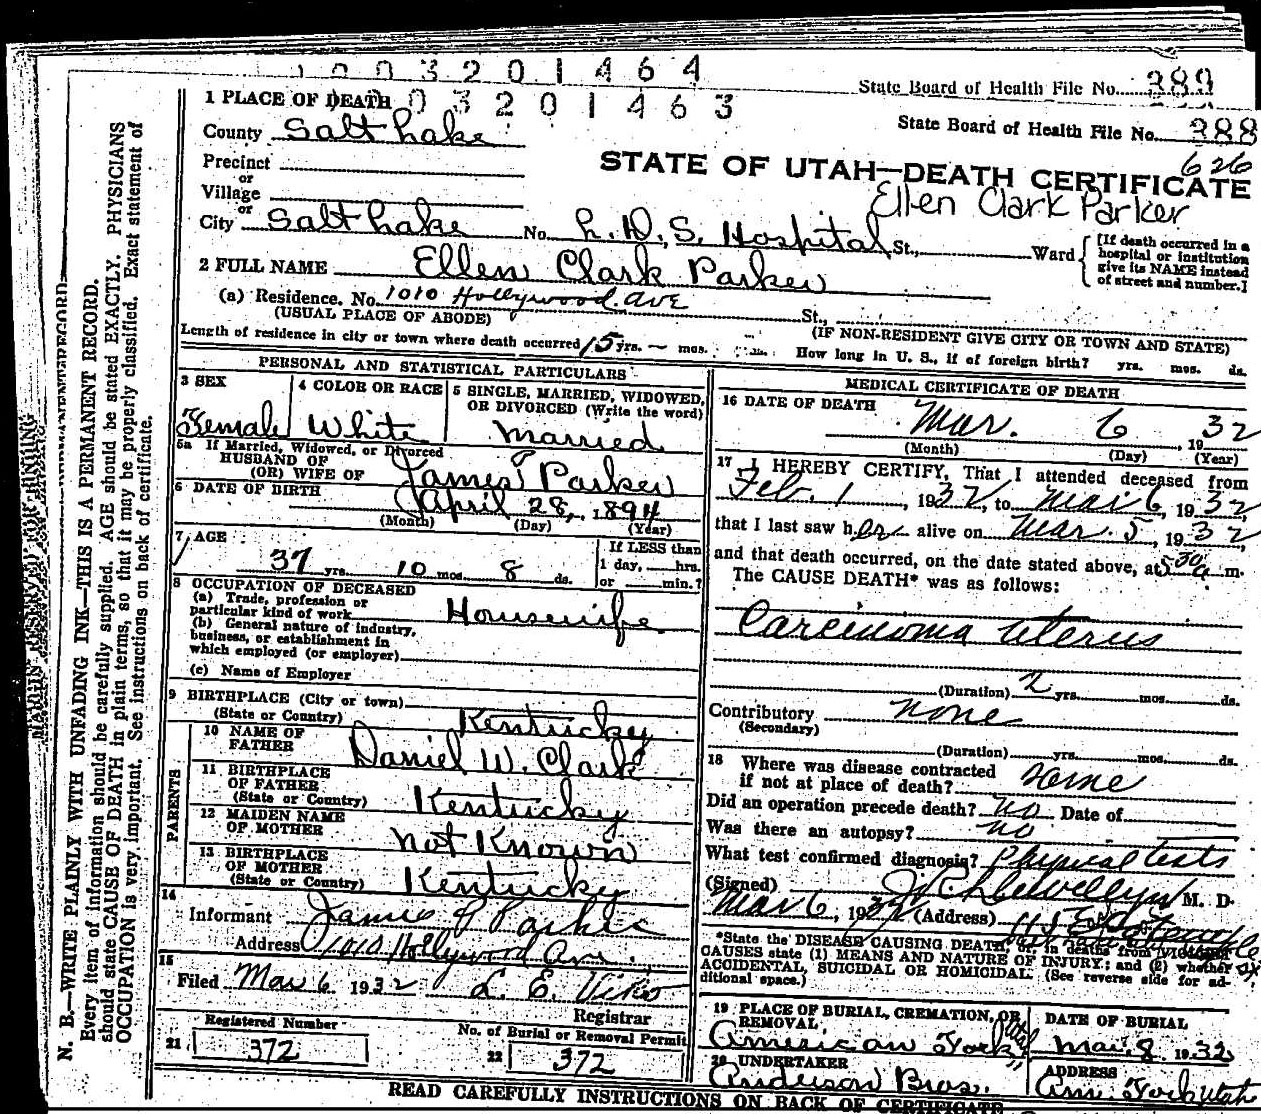 1 0 0 3 2 0 1 4 6 4
State Board of Health File No. 389
1 PLACE OF DEATH 0 3 2 0 1 4 6 3
State Board of Health File No. 388
County Salt Lake
626
Precinct
or
STATE OF UTAH—DEATH CERTIFICATE
Village
Ellen Clark Parker
or
City Salt Lake No. L. D. S. Hospital St., Ward
[If death occurred in a
hospital or institution
give its NAME instead
of street and number.]
2 FULL NAME Ellen Clark Parker
(a) Residence. No. 1010 Hollywood Ave St.,
(USUAL PLACE OF ABODE)
(IF NON-RESIDENT GIVE CITY OR TOWN AND STATE)
Length of residence in city or town where death occurred 15 yrs. — mos. ds. How long in U. S., if of foreign birth? yrs. mos. ds.
PERSONAL AND STATISTICAL PARTICULARS
3 SEX
Female
4 COLOR OR RACE
White
5 SINGLE, MARRIED, WIDOWED,
OR DIVORCED (Write the word)
Married
5a If Married, Widowed, or Divorced
HUSBAND OF
(OR) WIFE OF James P Parker
6 DATE OF BIRTH April 28, 1894
(Month) (Day) (Year)
7 AGE
37 yrs. 10 mos. 8 ds.
If LESS than
1 day, hrs.
or min.?
8 OCCUPATION OF DECEASED
(a) Trade, profession or
particular kind of work Housewife
(b) General nature of industry,
business, or establishment in
which employed (or employer)
(c) Name of Employer
9 BIRTHPLACE (City or town)
(State or Country) Kentucky
PARENTS
10 NAME OF
FATHER Daniel W. Clark
11 BIRTHPLACE
OF FATHER
(State or Country) Kentucky
12 MAIDEN NAME
OF MOTHER Not Known
13 BIRTHPLACE
OF MOTHER
(State or Country) Kentucky
14
Informant James P Parker
Address 1010 Hollywood Ave.
15
Filed Mar 6 1932 L. E. Viko
Registrar
21 Registered Number
372
No. of Burial or Removal Permit
22 372
MEDICAL CERTIFICATE OF DEATH
16 DATE OF DEATH
Mar. 6, 1932
(Month) (Day) (Year)
17 I HEREBY CERTIFY, That I attended deceased from
Feb. 1, 1932, to Mar 6, 1932,
that I last saw her alive on Mar. 5, 1932,
and that death occurred, on the date stated above, at 5:30 a m.
The CAUSE DEATH* was as follows:
Carcinoma Uterus
(Duration) 2 yrs. mos. ds.
Contributory none
(Secondary)
(Duration) yrs. mos. ds.
18 Where was disease contracted
if not at place of death? Home
Did an operation precede death? No Date of
Was there an autopsy? no
What test confirmed diagnosis? Physical tests
(Signed) Llewellyn M. D.
Mar 6, 1932 (Address)
*State the DISEASE CAUSING DEATH, or in deaths from VIOLENT
CAUSES state (1) MEANS AND NATURE OF INJURY; and (2) whether
ACCIDENTAL, SUICIDAL OR HOMICIDAL. (See reverse side for ad-
ditional space.)
19 PLACE OF BURIAL, CREMATION, OR
REMOVAL
American Fork, Utah
DATE OF BURIAL
Mar. 8, 1932
20 UNDERTAKER
Anderson Bros.
ADDRESS
Am. Fork Utah
READ CAREFULLY INSTRUCTIONS ON BACK OF CERTIFICATE
N. B.—WRITE PLAINLY WITH UNFADING INK—THIS IS A PERMANENT RECORD.
Every item of information should be carefully supplied. AGE should be stated EXACTLY. PHYSICIANS
should state CAUSE OF DEATH in plain terms, so that it may be properly classified. Exact statement of
OCCUPATION is very important. See instructions on back of certificate.